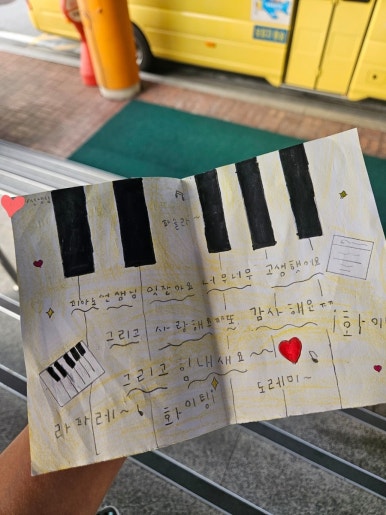 파솔라~
피아노선생님 있잖아요 너무너무 고생했어요
그리고 사랑해요 또 감사해요
그리고 힘내세요~~
도레미~
화이팅!